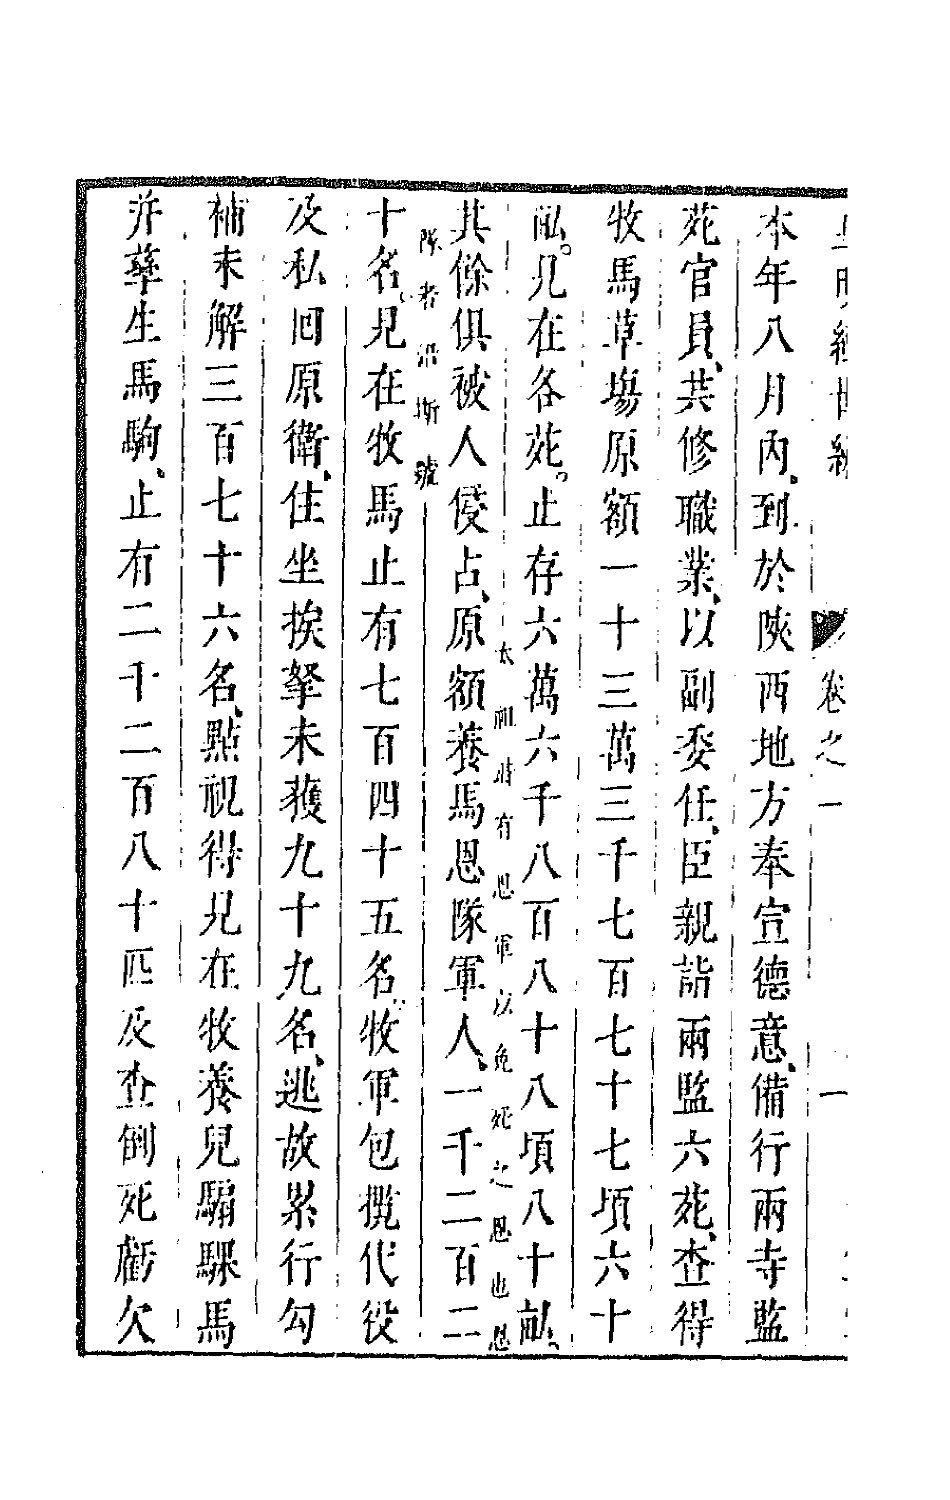 卷之一
一
本年八月內到於陝西地方奉宣德意備行兩寺監
苑官員共修職業以副委任臣親詣兩監六苑查得
牧馬草場原額一十三萬三千七百七十七頃六十
畝見在各苑止存六萬六千八百八十八頃八十畝
太祖時有恩軍以免死之恩也恩
其餘俱被人侵占原額養馬恩隊軍人一千二百二
隊者沿斯號
十名見在牧馬止有七百四十五名牧軍包攬代役
及私回原衛住坐挨拏未獲九十九名逃故累行勾
補未解三百七十六名點視得見在牧養兒騸騍馬
并孳生馬駒止有二千二百八十匹及查倒死虧欠